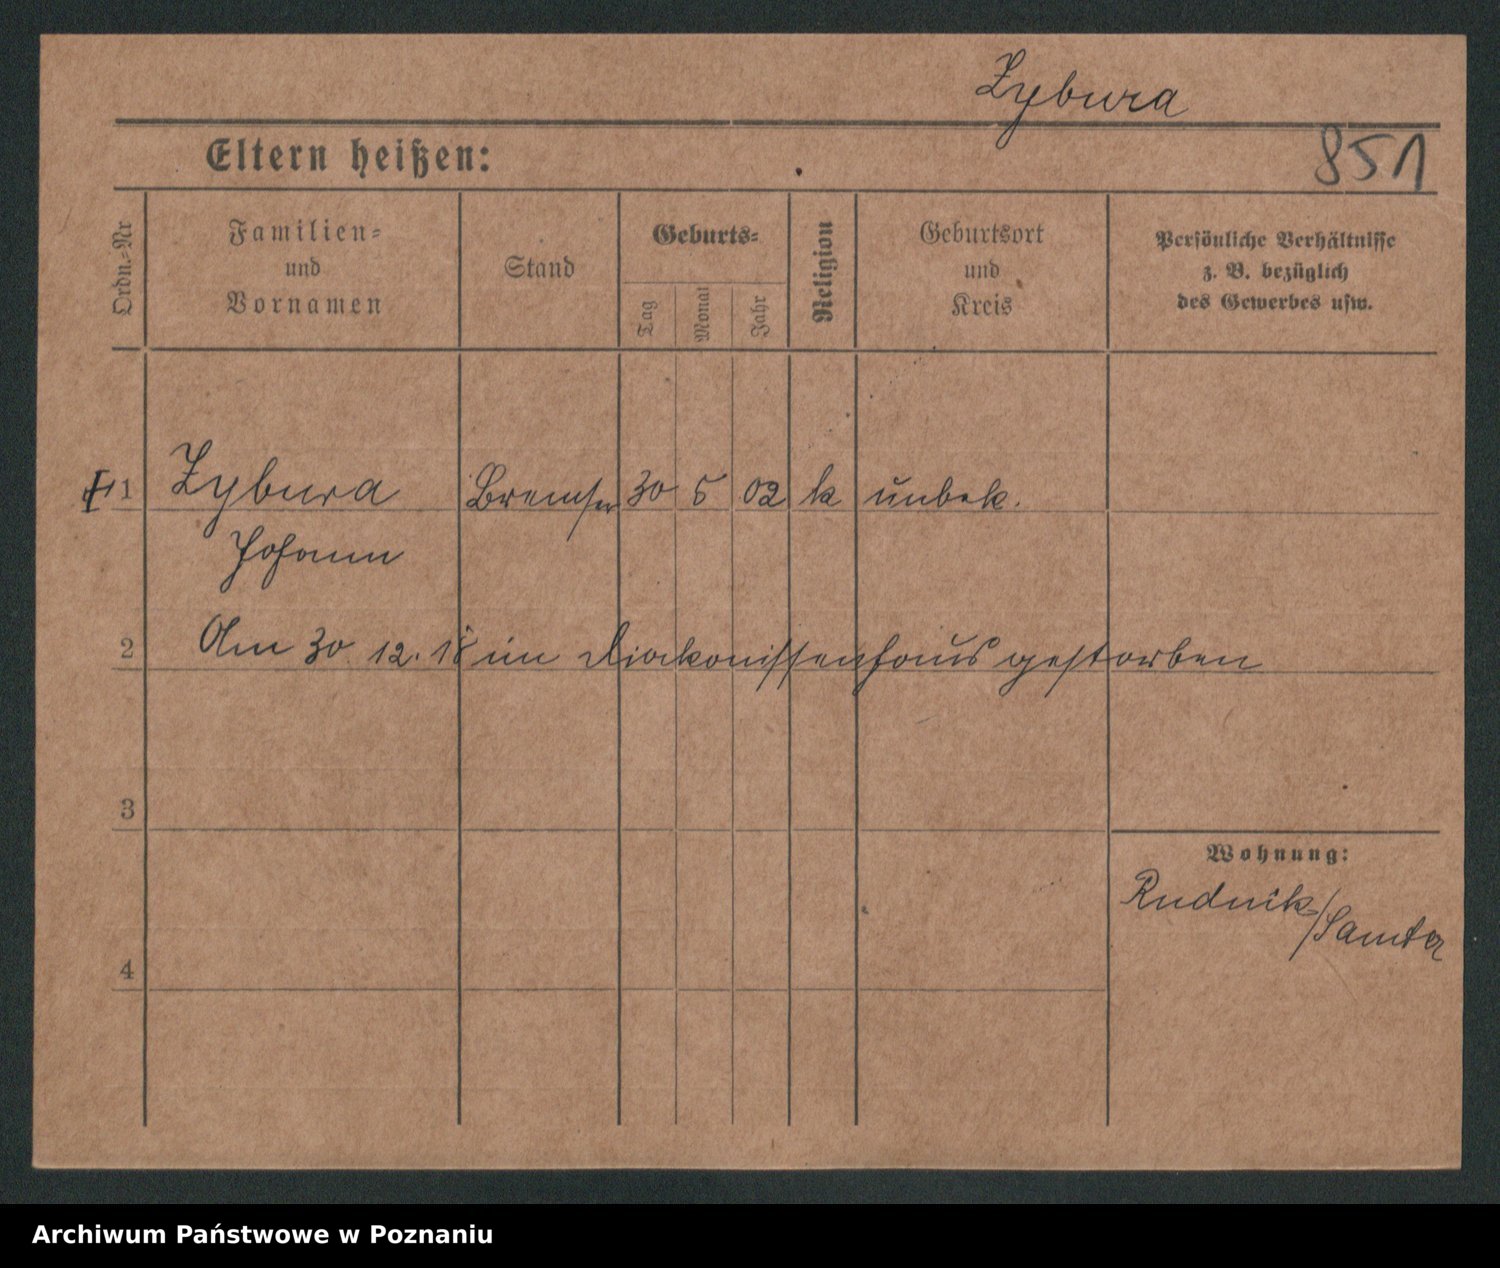 Zybura
851
Eltern heißen:
Ordn.-Nr
Familien-
und
Vornamen
Stand
Geburts-
Tag
Monat
Jahr
Religion
Geburtsort
und
Kreis
Persönliche Verhältnisse
z. B. bezüglich
des Gewerbes usw.
1 Zybura Bremser 30 5 02 k unbek.
Johann
2 Am 30 12. 18 im Diakonissenhaus gestorben
3
Wohnung:
Rudnik/Samter
4
Archiwum Państwowe w Poznaniu